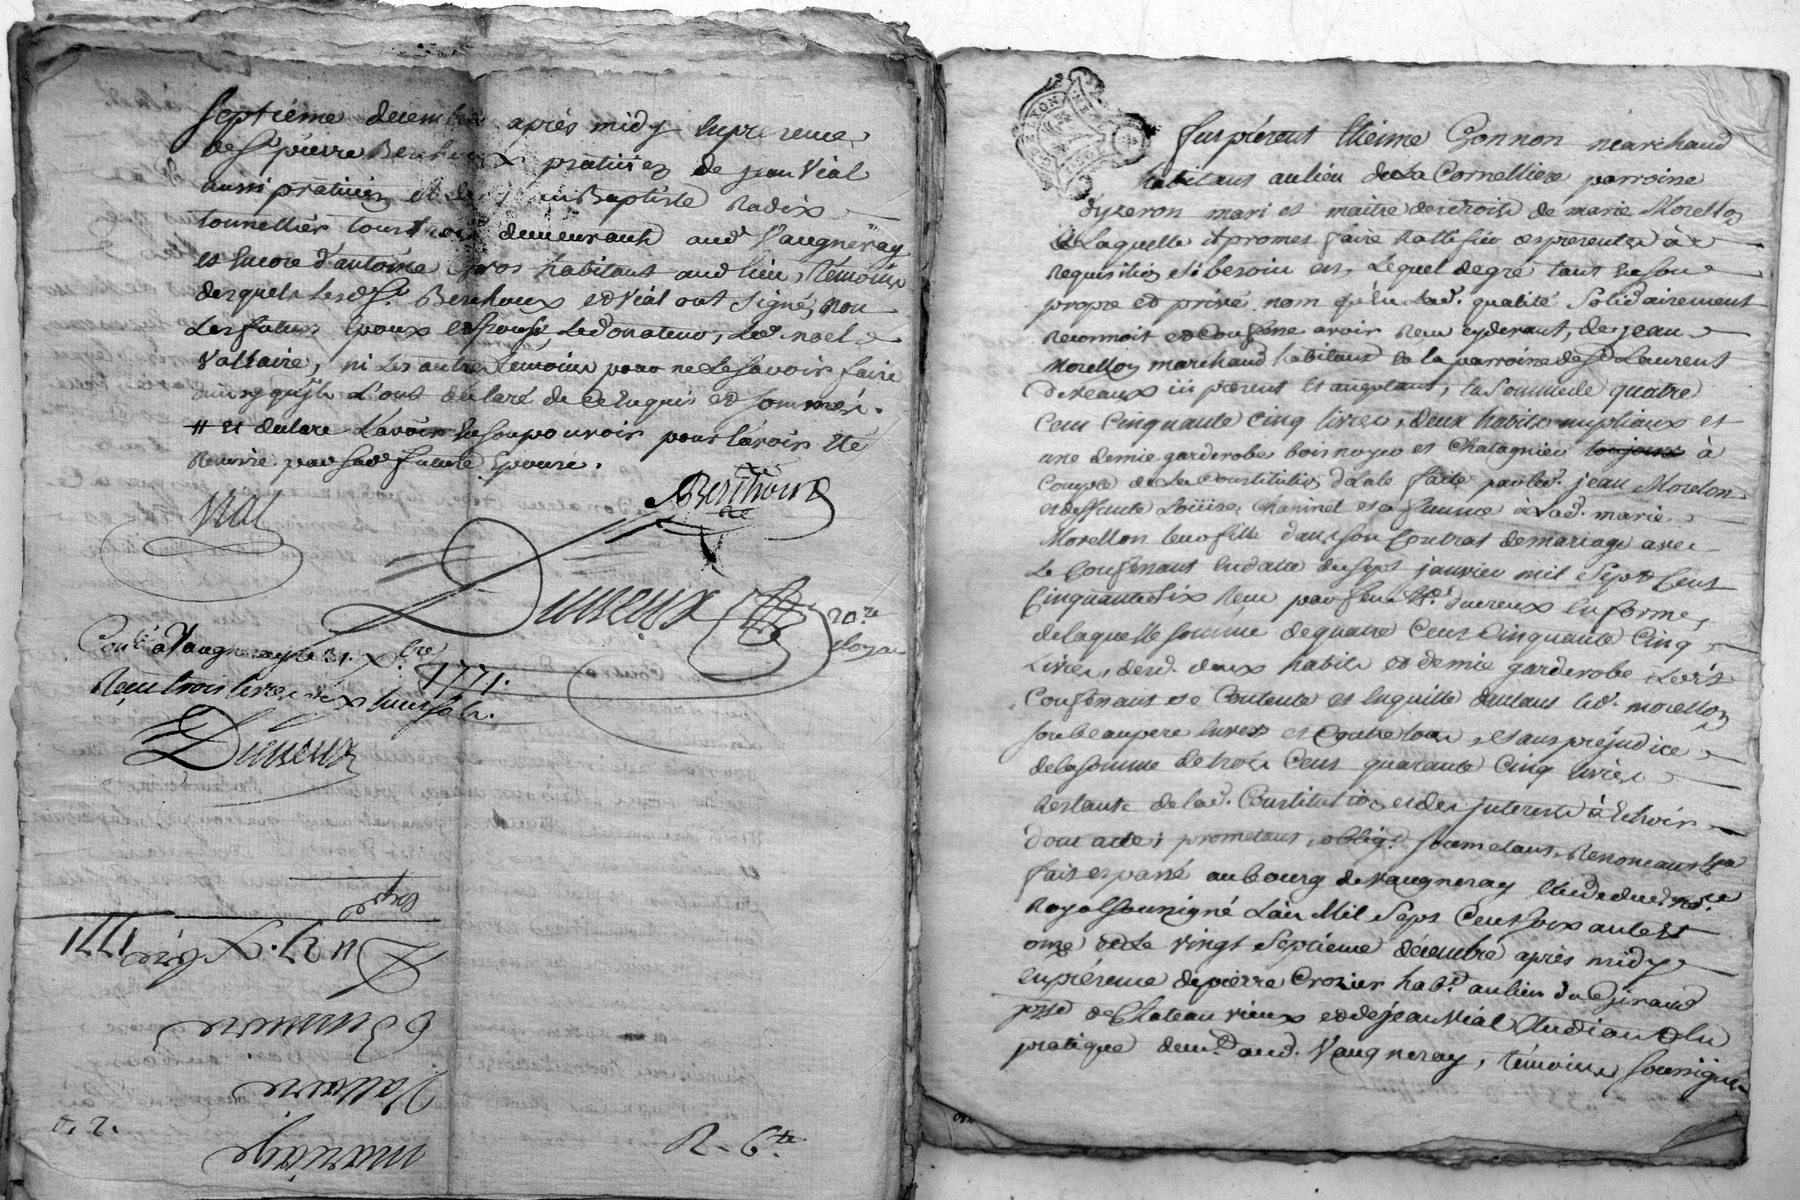 Septiéme decembre après midy en presence
de Sr pierre Berthoux praticien de jean Vial
aussi praticien et de Baptiste Radix
tonnellier tous trois demeurants aud Vaugneray
et encore d'antoine habitant aud lieu, témoins
desquels lesd Srs Berthoux et Vial ont signé, non
Les futurs Epoux Ledonateur, Led noel
Vallaire, ni Les autres temoins pour ne Le savoir faire
ainsy qu'ils L'ont déclaré de ce enquis et sommés.
# et declare L'avoir en son pouvoir pour l'avoir été
Remise par sad future Epouse.
Vial
Berthoux
Dureux
No.re
Royal
Con.lé à Vaugneray le 31. X.bre 1771.
Reçu trois livres dix huit sols.
Dureux
Exp.é
Du 27. Xbre 1771
Vallaire
mariage
R - 6.te
Fut présent Etienne Gonnon marchand
habitant au lieu de La Cornelliere parroisse
dyzeron mari et maitre des droits de marie Morellon
de Laquelle il promet faire Rattifier es presentes à
Requisition si besoin est, Lequel de gré tant en son
propre et privé nom qu'en Lad. qualité Solidairement
Reconnoit et Confesse avoir Reçu cy devant, de jean
Morellon marchand habitant en la parroisse de St Laurent
de Veaux ici présent et acceptant, la Somme de quatre
Cent Cinquante Cinq livres, deux habits nuptiaux et
une demie garderobe bois noyer et Chatagnier toujours à
Compte de La Constitution dotale faite par led. jean Morellon
et deffunte Loüise Chaninel sa femme à Lad. marie
Morellon leur fille dans son Contrat de mariage avec
Le Confessant en datte du sept janvier mil Sept Cent
Cinquante Six Reçu par feu M.e dureux en forme,
de laquelle somme de quatre Cent Cinquante Cinq
Livres, desd. deux habits et demie garderobe Led
Confessant se Contente et en quitte d'autant led. morellon
son beaupere envers et Contre tous, et sans préjudice
de la somme de trois Cent quarante Cinq livres
Restante de lad. Constitution et des interests à Echoir
dont acte; prometant, oblig.t soumetant, Renonceant
fait et passé au bourg de Vaugneray Etude dud. no.re
Royal soussigné L'an Mil Sept Cent soixante et
onze et Le vingt Septieme décembre après midy
en présence de pierre Crozier hab.t au lieu du Giraud
p.sse de Chateau vieux et de jean Vial Etudiant en
pratique dem.t aud. Vaugneray, témoins soussignés